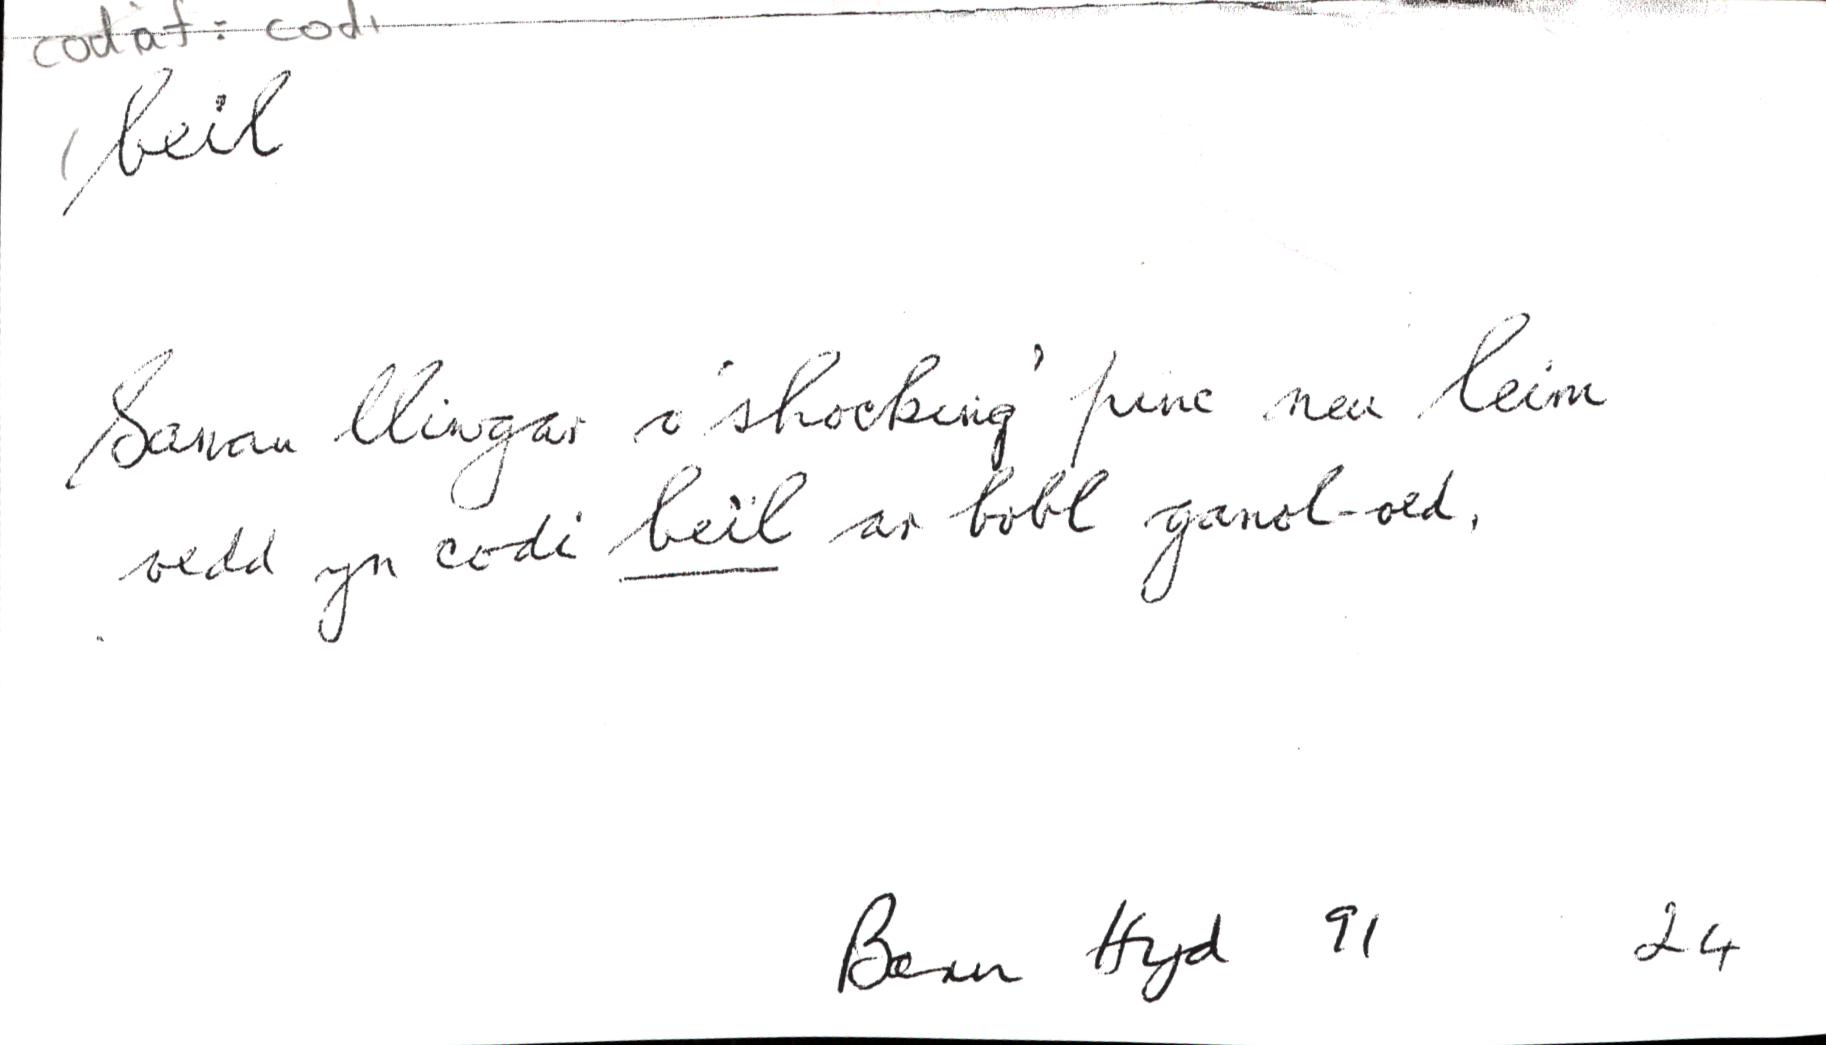 codaf: codi
beïl
Sanau lliwgar o 'shocking' pinc neu leim
oedd yn codi beïl ar bobl ganol-oed.
Barn Hyd 91 24